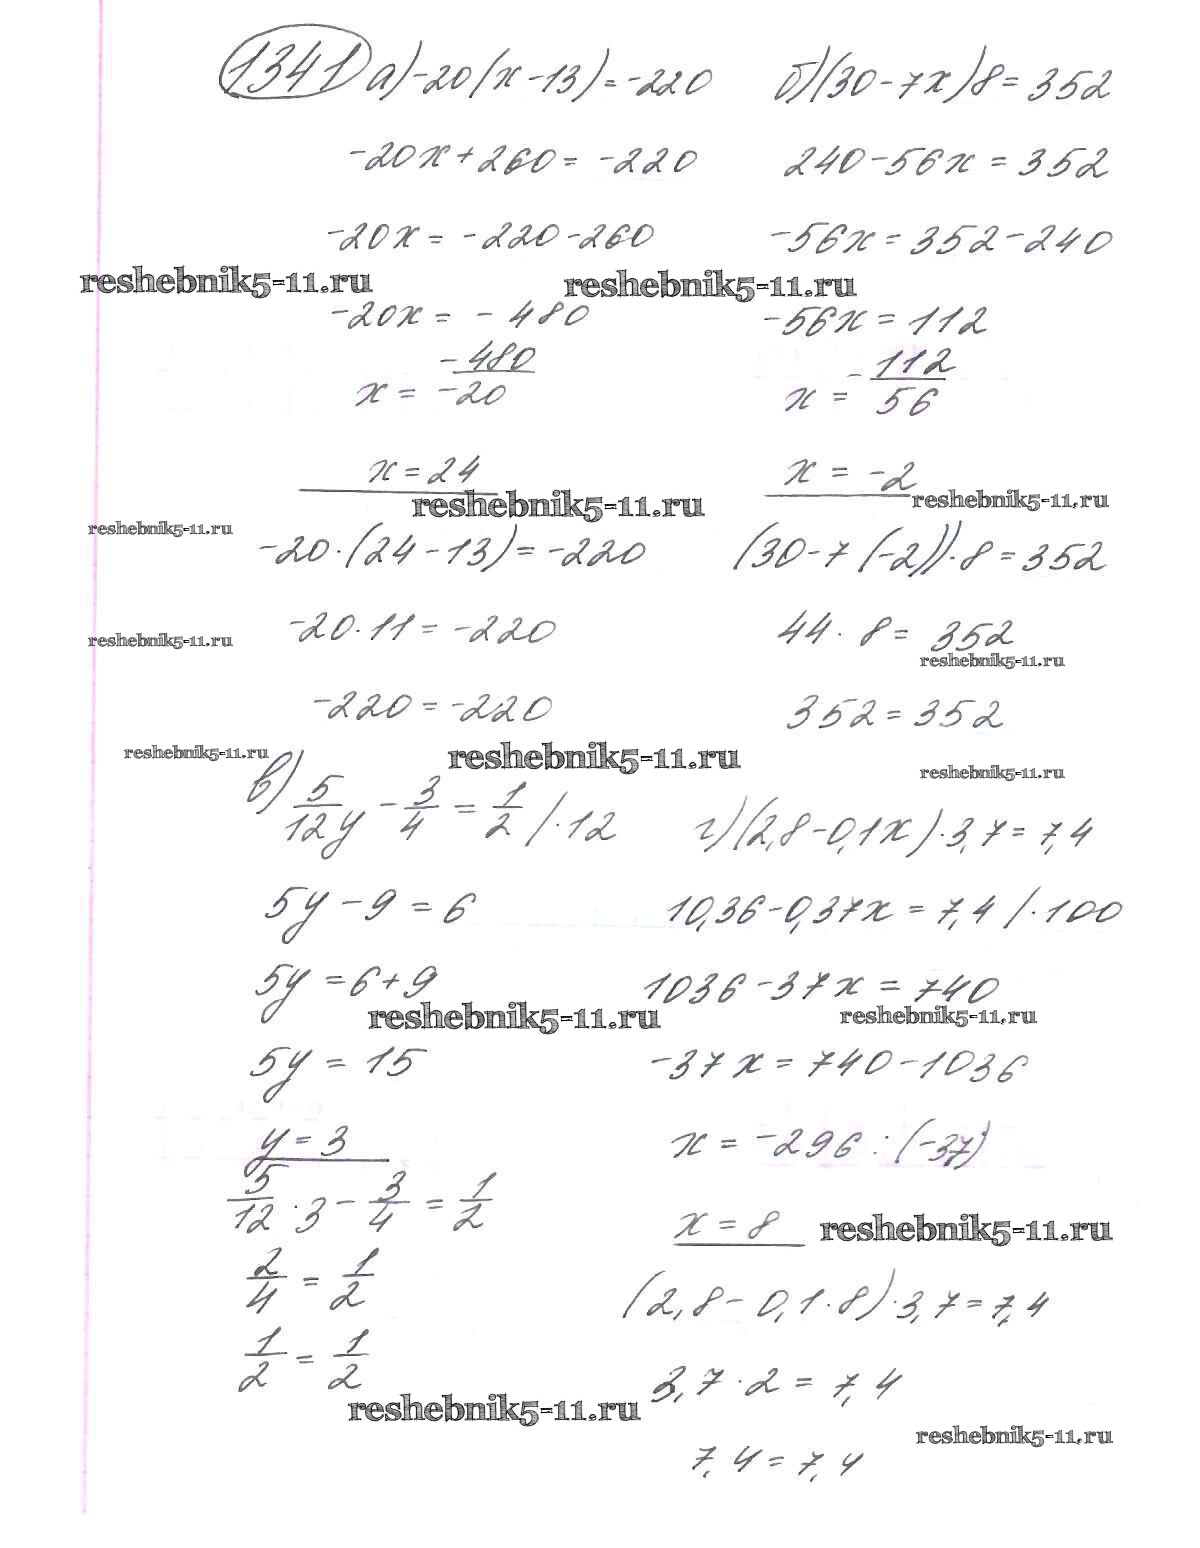 1341 а) -20(x-13)=-220
-20x+260=-220
-20x=-220-260
reshebnik5-11.ru
-20x=-480
x= -480/-20
x=24
reshebnik5-11.ru
reshebnik5-11.ru
-20·(24-13)=-220
reshebnik5-11.ru
-20·11=-220
-220=-220
б) (30-7x)8=352
240-56x=352
-56x=352-240
reshebnik5-11.ru
-56x=112
x= -112/56
x=-2
reshebnik5-11.ru
(30-7(-2))·8=352
44·8=352
reshebnik5-11.ru
352=352
reshebnik5-11.ru
reshebnik5-11.ru
reshebnik5-11.ru
в) 5/12y - 3/4 = 1/2 /·12
5y-9=6
5y=6+9
reshebnik5-11.ru
5y=15
y=3
5/12·3 - 3/4 = 1/2
2/4 = 1/2
1/2 = 1/2
reshebnik5-11.ru
г) (2,8-0,1x)·3,7=7,4
10,36-0,37x=7,4 /·100
1036-37x=740
reshebnik5-11.ru
-37x=740-1036
x=-296:(-37)
x=8
reshebnik5-11.ru
(2,8-0,1·8)·3,7=7,4
3,7·2=7,4
reshebnik5-11.ru
7,4=7,4